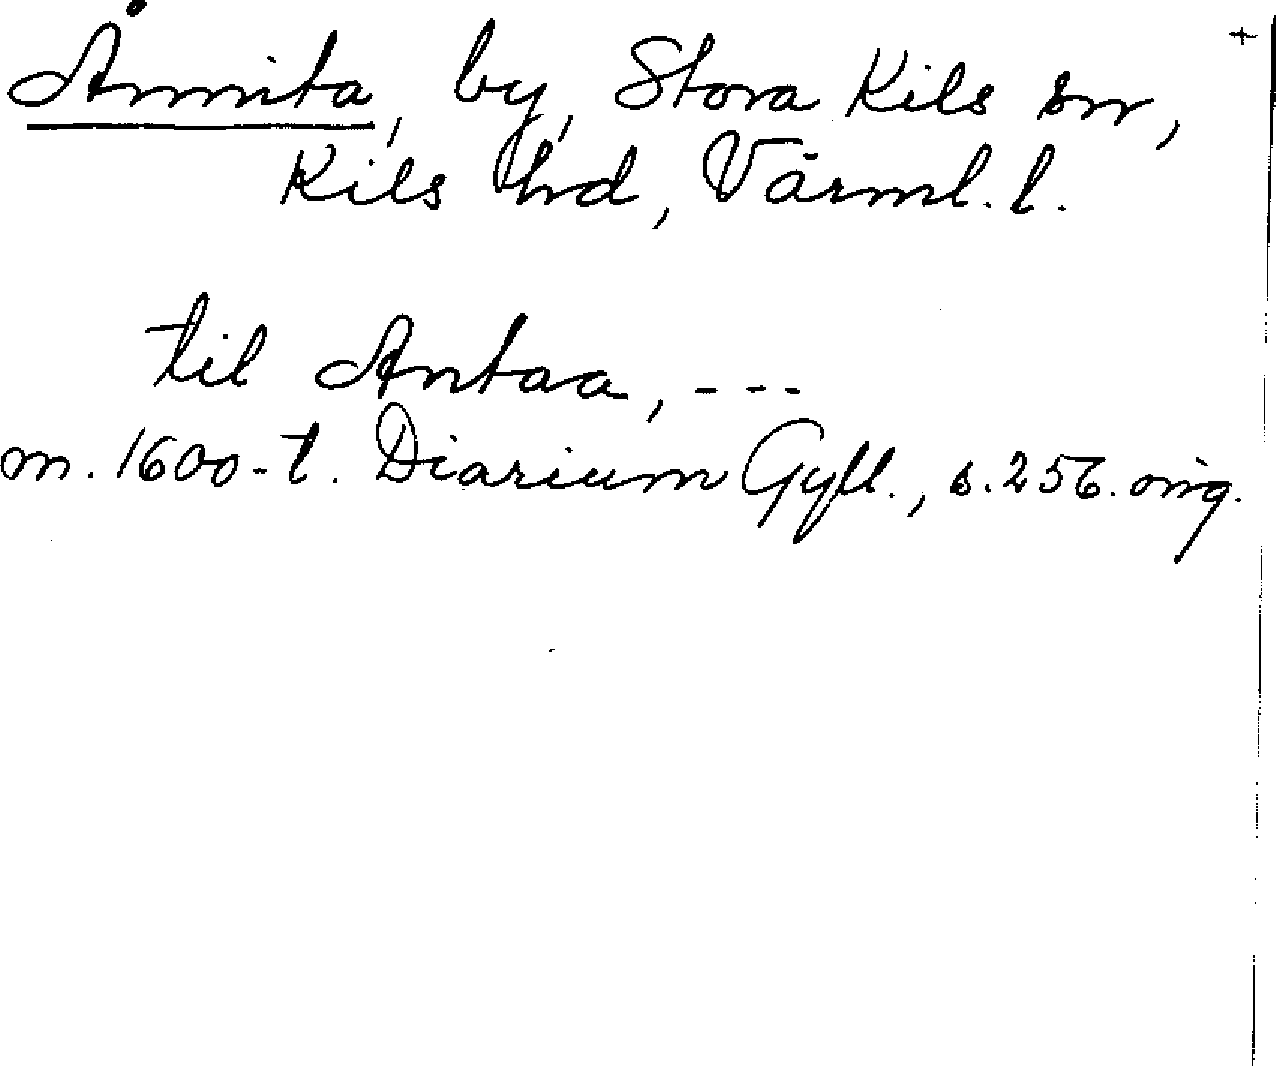 Årmita, by, Stora Kils sn, +
Kils hd, Värml. l.
til Antaa, ---
m. 1600-t. Diarium Gyll., s. 256.